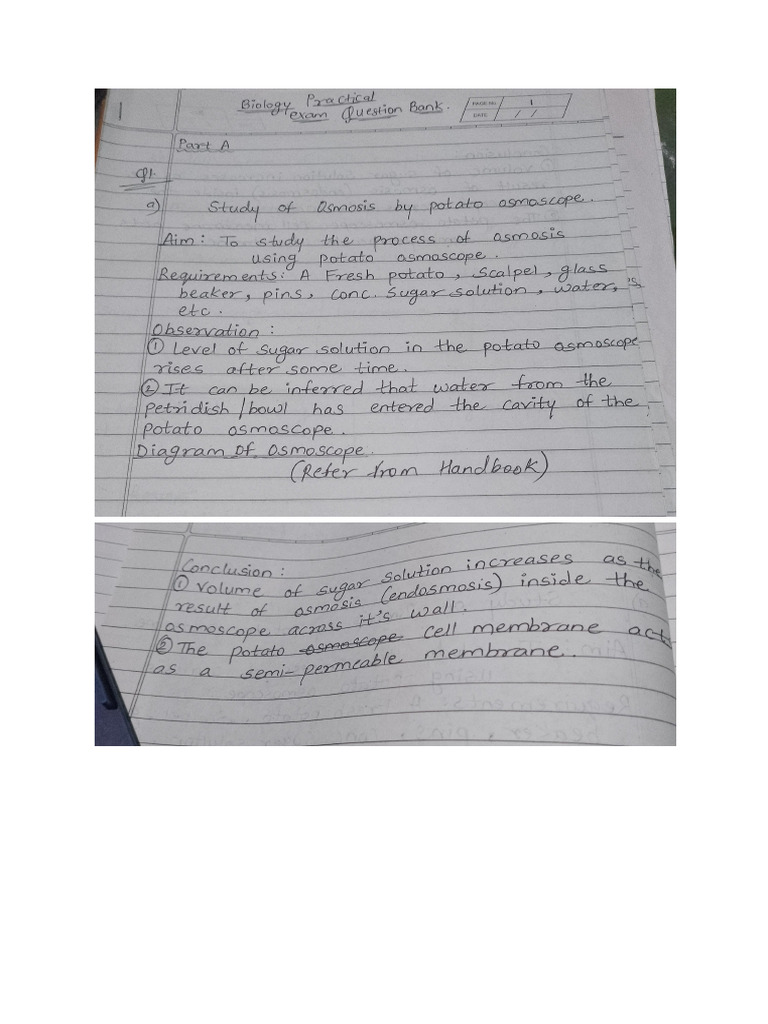 1
Biology Practical
exam Question Bank.
PAGE NO 1
DATE / /
Part A
Q1.
a) Study of Osmosis by potato osmoscope.
Aim: To study the process of osmosis
using potato osmoscope.
Requirements: A Fresh potato, scalpel, glass
beaker, pins, conc. Sugar solution, water,
etc.
Observation:
① Level of sugar solution in the potato osmoscope
rises after some time.
② It can be inferred that water from the
petridish/bowl has entered the cavity of the
potato osmoscope.
Diagram Of Osmoscope.
(Refer from Handbook)
Conclusion:
① Volume of sugar solution increases as the
result of osmosis (endosmosis) inside the
osmoscope across it's wall.
② The potato osmoscope cell membrane act
as a semi-permeable membrane.